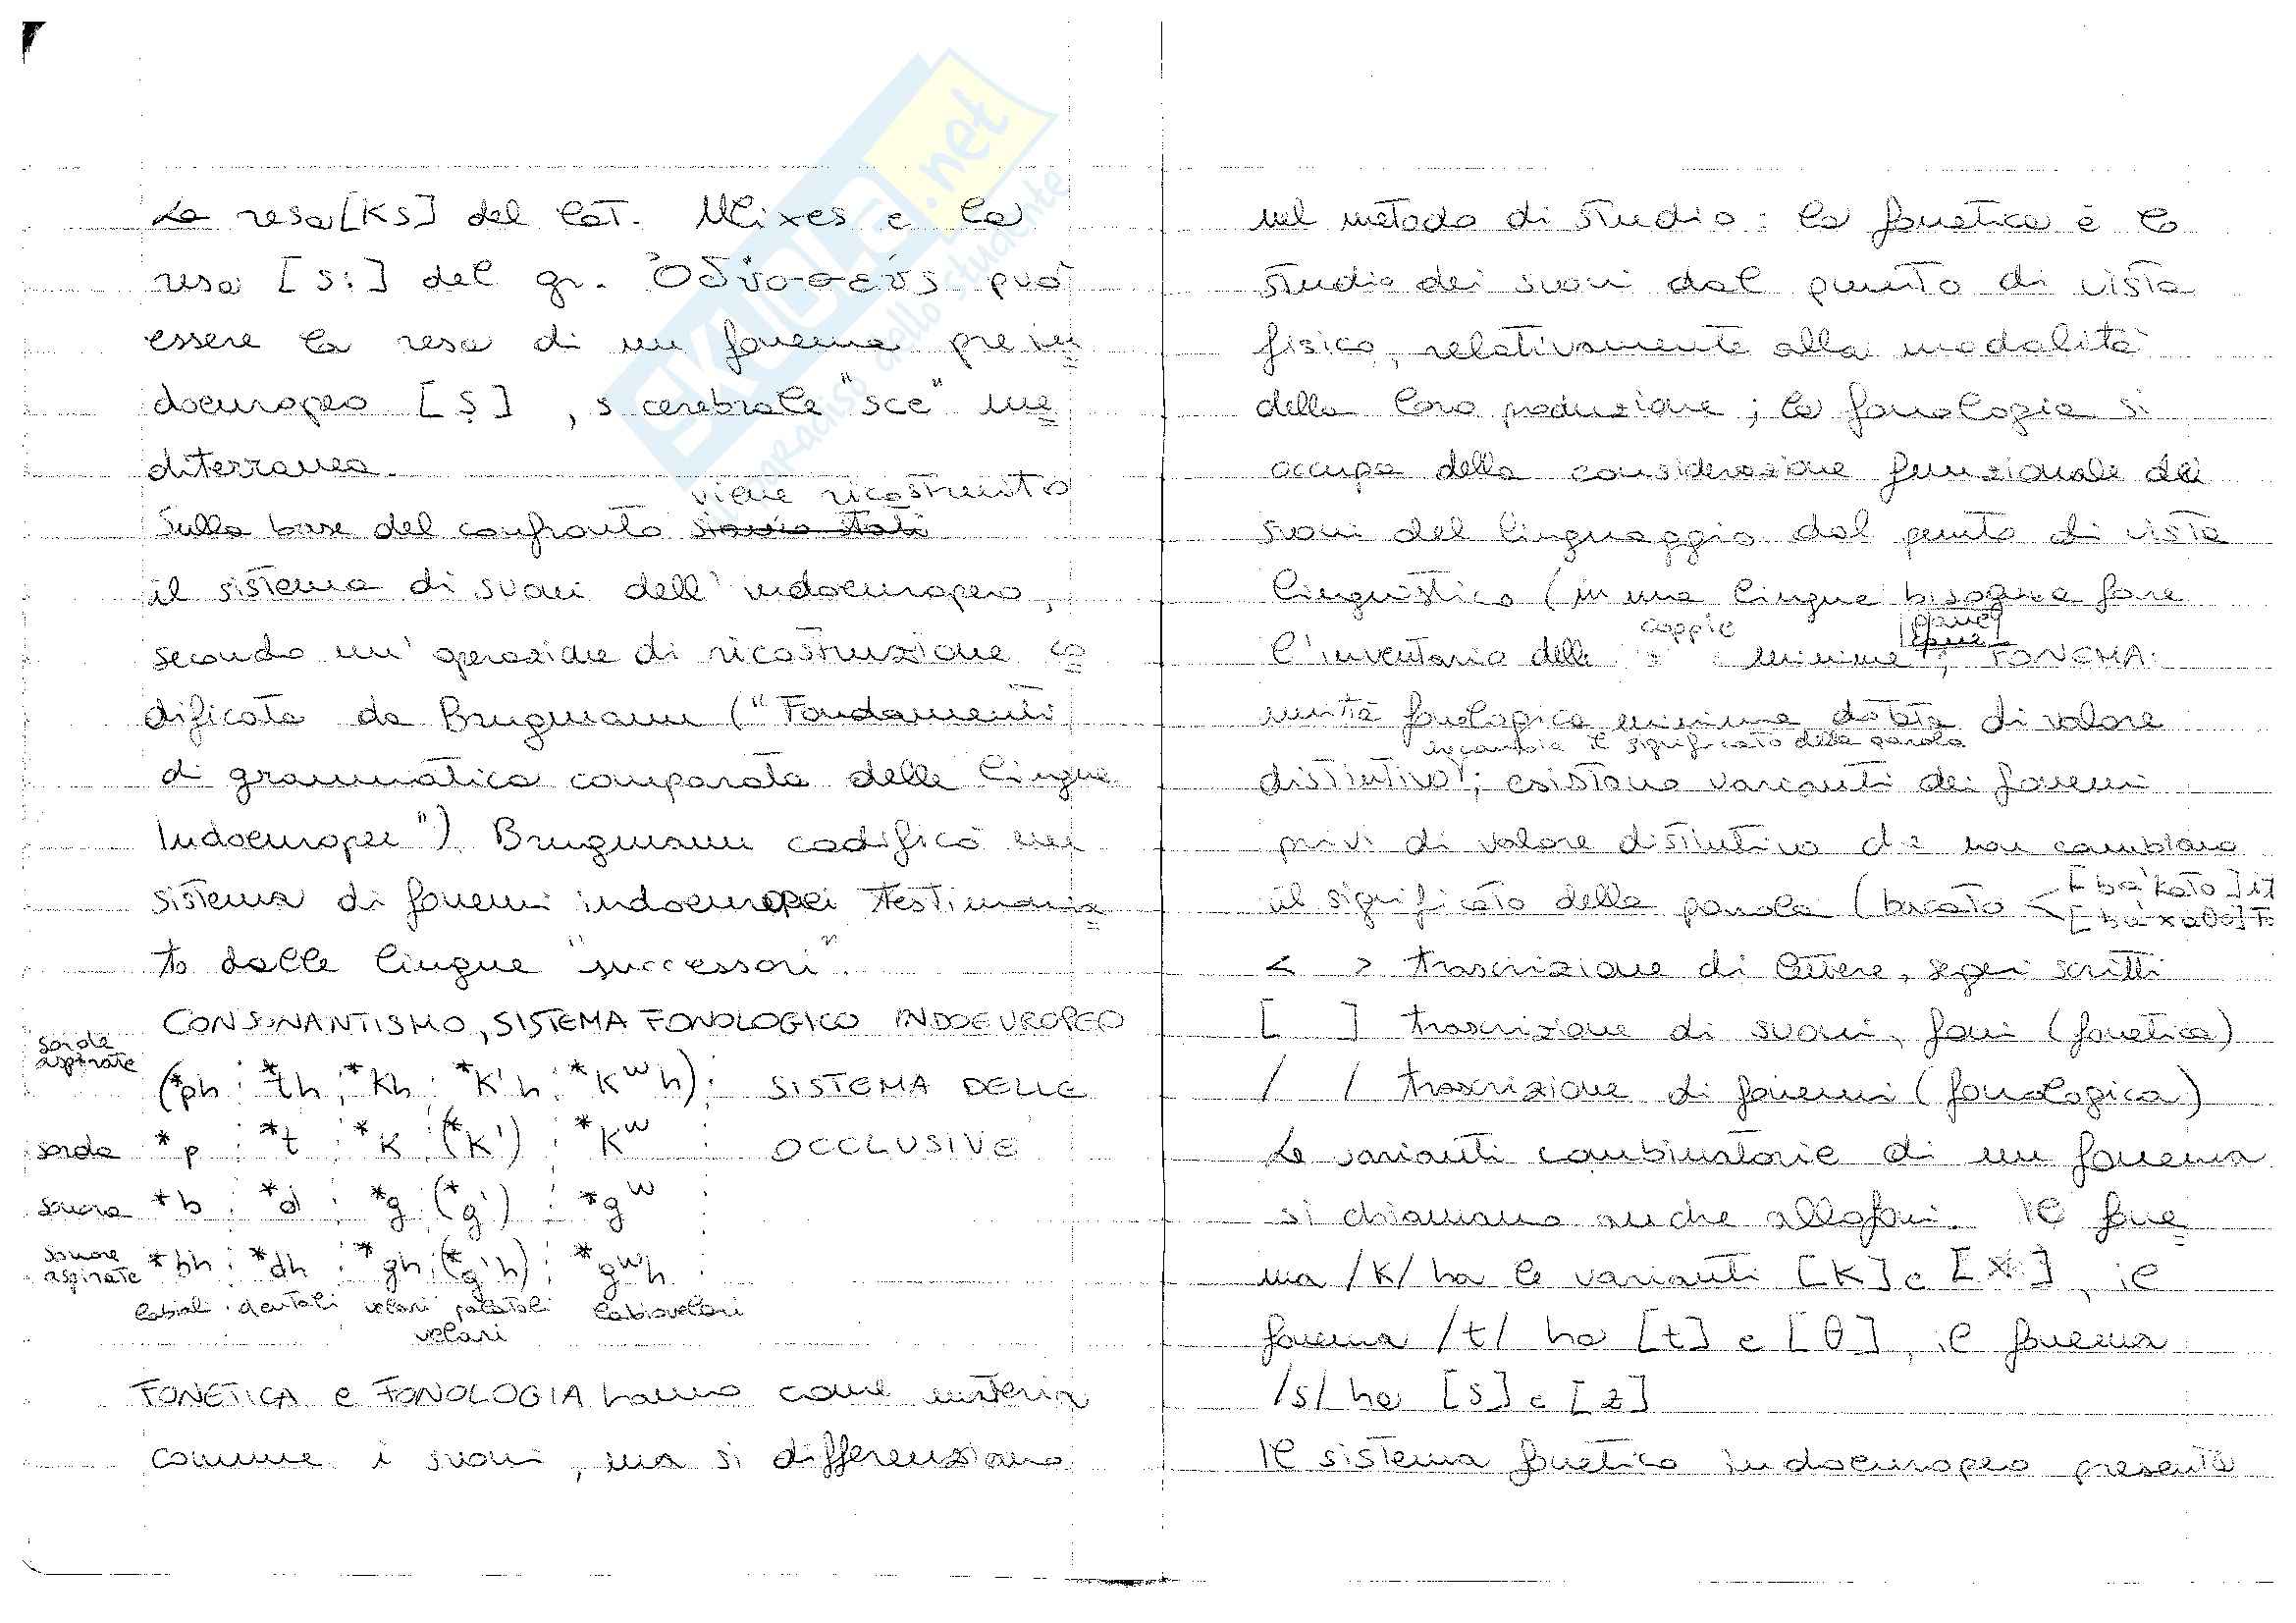 La resa [Ks] del lat. Ulixes e la
resa [s:] del gr. Ὀδυσσεύς può
essere la resa di un fonema prein
doeuropeo [ṣ], s cerebrale "sce" me
diterranea.
viene ricostruito
Sulla base del confronto siano stati
il sistema di suoni dell'indoeuropeo,
secondo un'operazione di ricostruzione co
dificata da Brugmann ("Fondamenti
di grammatica comparata delle lingue
Indoeuropee") Brugmann codificò un
sistema di fonemi indoeuropei testimonia
to dalle lingue "successori".
CONSONANTISMO, SISTEMA FONOLOGICO INDOEUROPEO
sorde aspirate (*ph ; *th ; *kh ; *k'h ; *kʷh); SISTEMA DELLE
sorde *p ; *t ; *k (*k') ; *kʷ ; OCCLUSIVE
sonore *b ; *d ; *g (*g') ; *gʷ ;
sonore aspirate *bh ; *dh ; *gh ; (*g'h) ; *gʷh ;
labiali dentali velari palatali labiovelari
velari
FONETICA e FONOLOGIA hanno come materia
comune i suoni, ma si differenziano
SKUOLA.net
il paradiso dello studente
nel metodo di studio: la fonetica è lo
studio dei suoni dal punto di vista
fisico, relativamente alla modalità
della loro produzione; la fonologia si
occupa della considerazione funzionale dei
suoni del linguaggio dal punto di vista
linguistico (in una lingua bisogna fare
coppie
l'inventario delle minime; FONEMA:
unità fonologica minima dotata di valore
cambia il significato della parola
distintivo; esistono varianti dei fonemi
privi di valore distintivo che non cambiano
il significato della parola (bucato <
< > trascrizione di lettere, segni scritti
[ ] trascrizione di suoni, foni (fonetica)
/ / trascrizione di fonemi (fonologica)
Le varianti combinatorie di un fonema
si chiamano anche allofoni. Il fone
ma /K/ ha le varianti [K] e [x], il
fonema /t/ ha [t] e [θ], il fonema
/s/ ha [s] e [z]
Il sistema fonetico indoeuropeo presenta